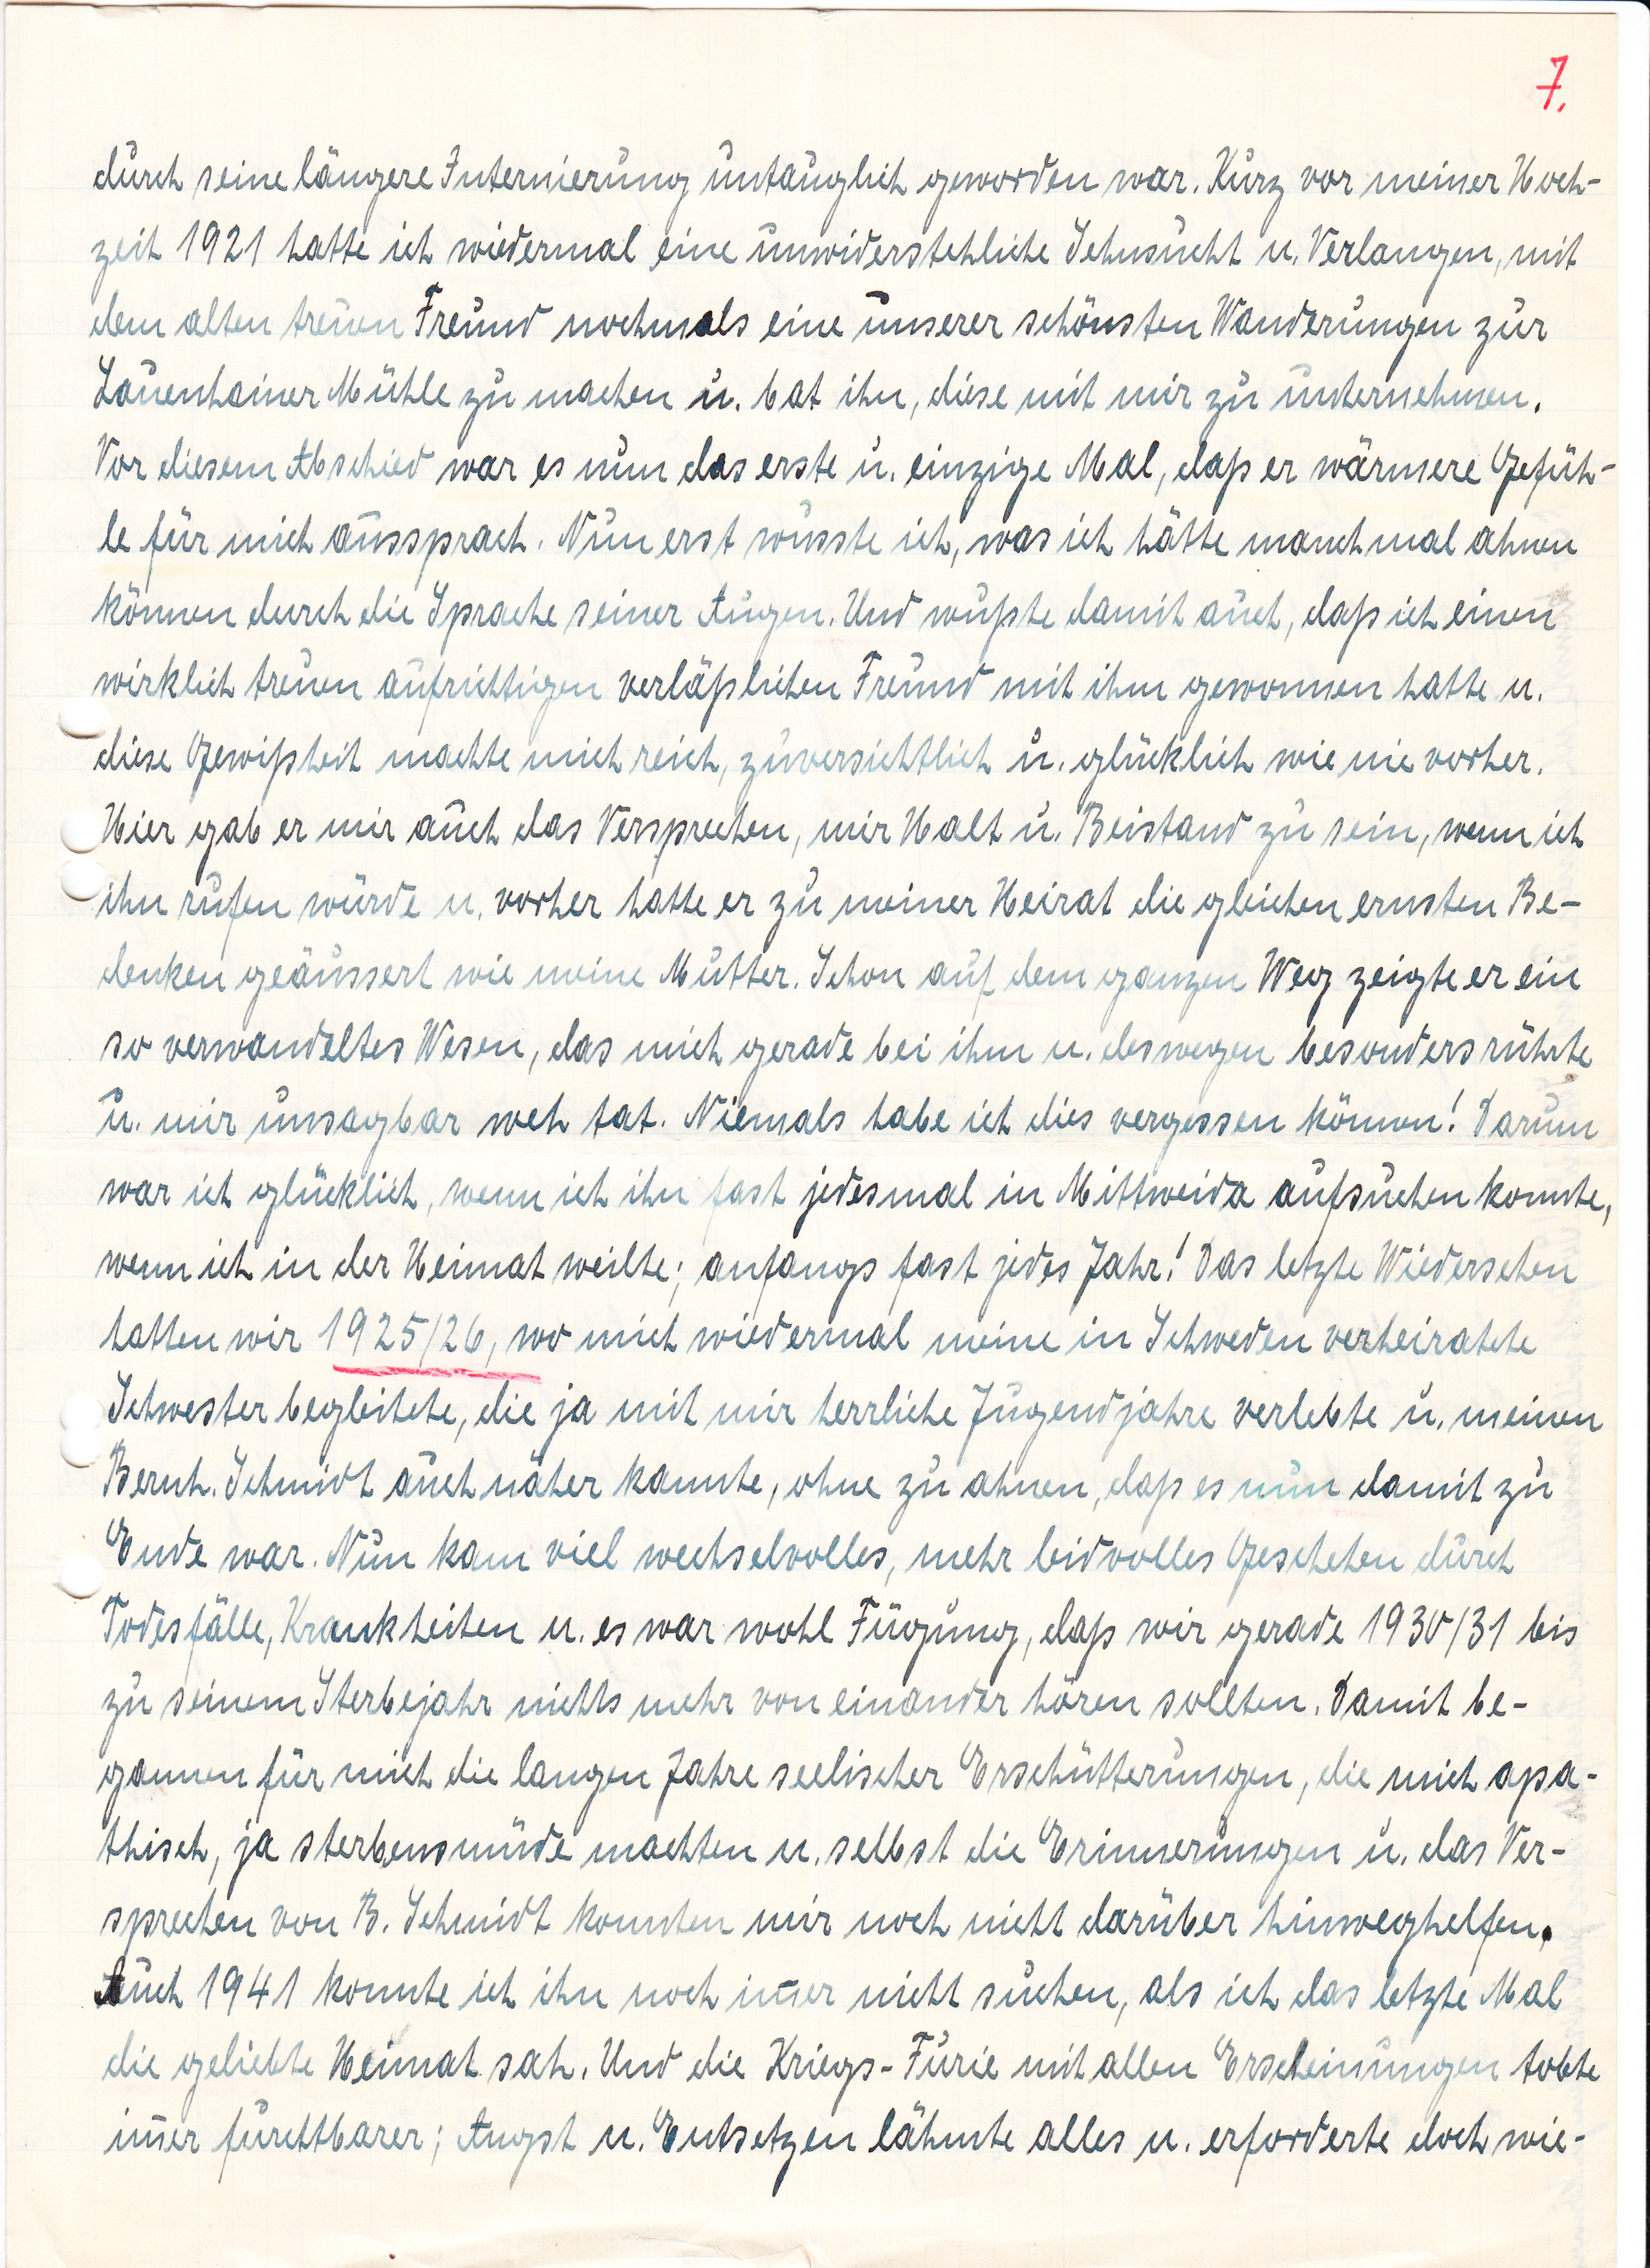 7.
durch seine längere Internierung untauglich geworden war. Kurz vor meiner Hoch-
zeit 1921 hatte ich wiedermal eine unwiderstehliche Sehnsucht u. Verlangen, mit
dem alten treuen Freund nochmals eine unserer schönsten Wanderungen zur
Lauenhainer Mühle zu machen u. bat ihn, diese mit mir zu unternehmen.
Vor diesem Abschied war es nun das erste u. einzige Mal, daß er wärmere Gefüh-
le für mich aussprach. Nun erst wusste ich, was ich hätte manchmal ahnen
können durch die Sprache seiner Augen. Und wußte damit auch, daß ich einen
wirklich treuen aufrichtigen verläßlichen Freund mit ihm gewonnen hatte u.
diese Gewißheit machte mich reich, zuversichtlich u. glücklich wie nie vorher.
Hier gab er mir auch das Versprechen, mir Halt u. Beistand zu sein, wenn ich
ihn rufen würde u. vorher hatte er zu meiner Heirat die gleichen ernsten Be-
denken geäussert wie meine Mutter. Schon auf dem ganzen Weg zeigte er ein
so verwandeltes Wesen, das mich gerade bei ihm u. deswegen besonders rührte
u. mir unsagbar weh tat. Niemals habe ich dies vergessen können! Darum
war ich glücklich, wenn ich ihn fast jedesmal in Mittweida aufsuchen konnte,
wenn ich in der Heimat weilte; anfangs fast jedes Jahr! Das letzte Wiedersehen
hatten wir 1925/26, wo mich wiedermal meine in Schweden verheiratete
Schwester begleitete, die ja mit mir herrliche Jugendjahre verlebte u. meinen
Bernh. Schmidt auch näher kannte, ohne zu ahnen, daß es nun damit zu
Ende war. Nun kam viel wechselvolles, mehr leidvolles Geschehen durch
Todesfälle, Krankheiten u. es war wohl Fügung, daß wir gerade 1930/31 bis
zu seinem Sterbejahr nichts mehr von einander hören sollten. Damit be-
gannen für mich die langen Jahre seelischer Erschütterungen, die mich apa-
thisch, ja sterbensmüde machten u. selbst die Erinnerungen u. das Ver-
sprechen von B. Schmidt konnten mir noch nicht darüber hinweghelfen.
Auch 1941 konnte ich ihn noch im̅er nicht suchen, als ich das letzte Mal
die geliebte Heimat sah. Und die Kriegs-Furie mit allen Erscheinungen tobte
im̅er furchtbarer; Angst u. Entsetzen lähmte alles u. erforderte doch wie-